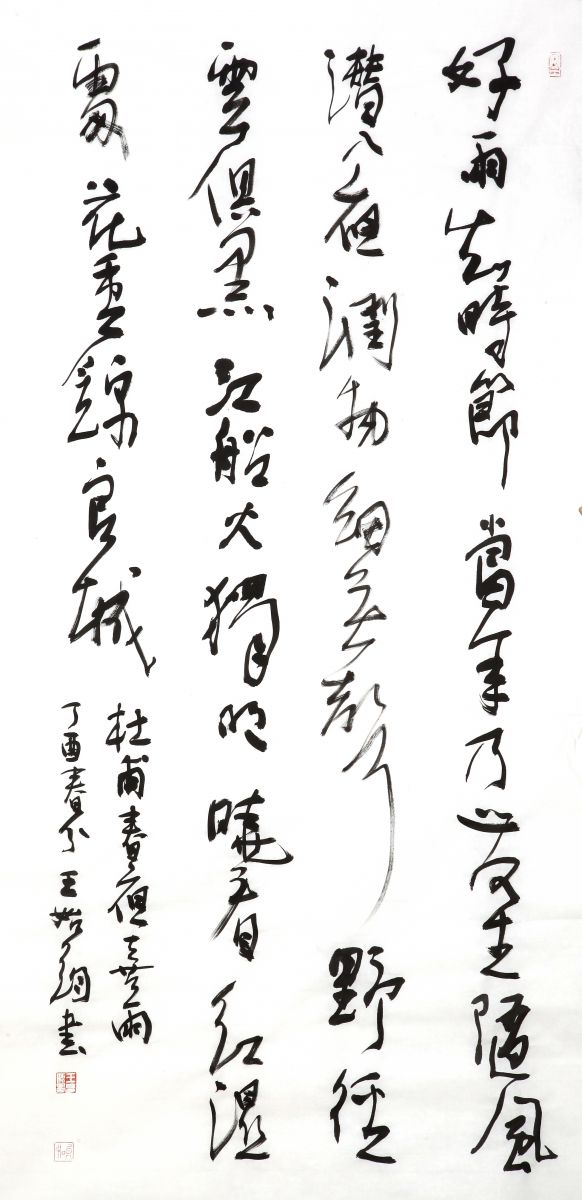 好雨知時節當春乃發生隨風
潛入夜潤物細無聲野徑
雲俱黑江船火獨明曉看紅濕
處花重錦官城
杜甫春夜喜雨
丁酉春分王始鈞書